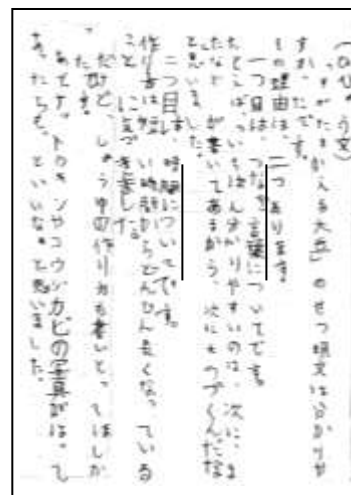 （ひひょう文）
「すがたをかえる大豆」のせつ明文は分かりや
すかったです。
その理由は、二つあります。
一つ目は、つなぎ言葉についてです。
たとえば、いちばん分かりやすいのは、次に、ま
たなど が書いてあるから、次にもつづくんだな
と思いました。
二つ目は、時間についてです。
作り方は短い時間からどんどん長くなっている
ことに気づきました。
だけど、しょうゆの作り方も書いとってほしか
ったです。
あてす。トウキンやコウジカビの写真がはって
あったらも、といいなと思いました。